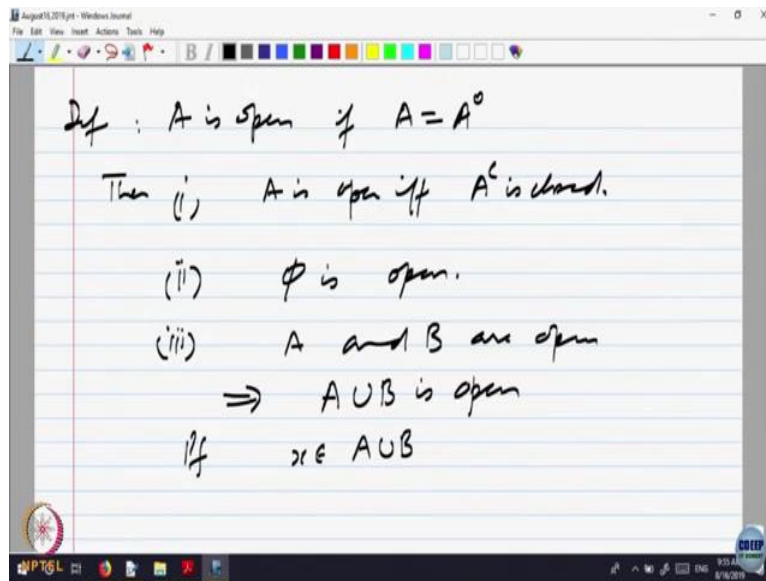 August16,2019.jnt - Windows Journal
File Edit View Insert Actions Tools Help
B I
Def : A is open if A = A⁰
Then (i) A is open iff Aᶜ is closed.
(ii) ϕ is open.
(iii) A and B are open
⇒ A ∪ B is open
Pf x ∈ A ∪ B
NPTEL
CDEEP
IIT BOMBAY
ENG
9:55 AM
8/16/2019